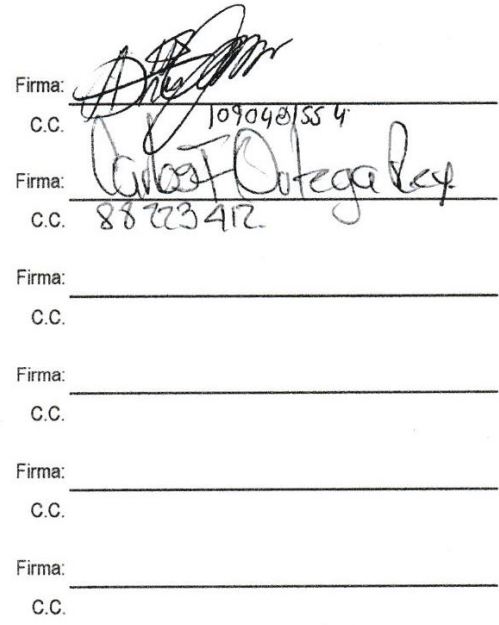 Firma:
C.C.
Firma: Carlos F Ortega Rey
C.C. 88223412.
Firma:
C.C.
Firma:
C.C.
Firma:
C.C.
Firma:
C.C.